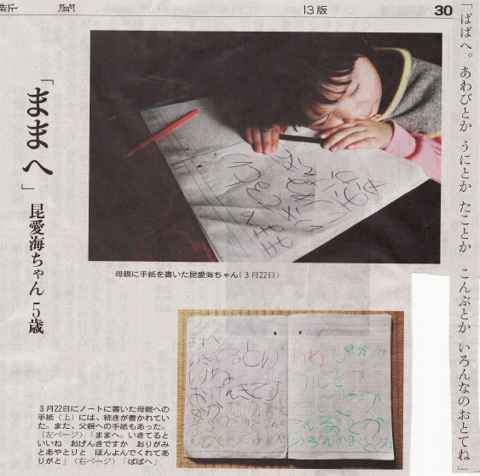 新聞
13版
30
「ぱぱへ。あわびとか うにとか たことか こんぶとか いろんなのおとてね」
「ままへ」 昆愛海ちゃん 5歳
母親に手紙を書いた昆愛海ちゃん(3月22日)
3月22日にノートに書いた母親への
手紙(上)には、続きが書かれてい
た。また、父親への手紙もあった。
(左ページ)「ままへ。いきてると
いいね おげんきですか おりがみ
とあやとりと ほんよんでくれてあ
りがと」(右ページ)「ぱぱへ」